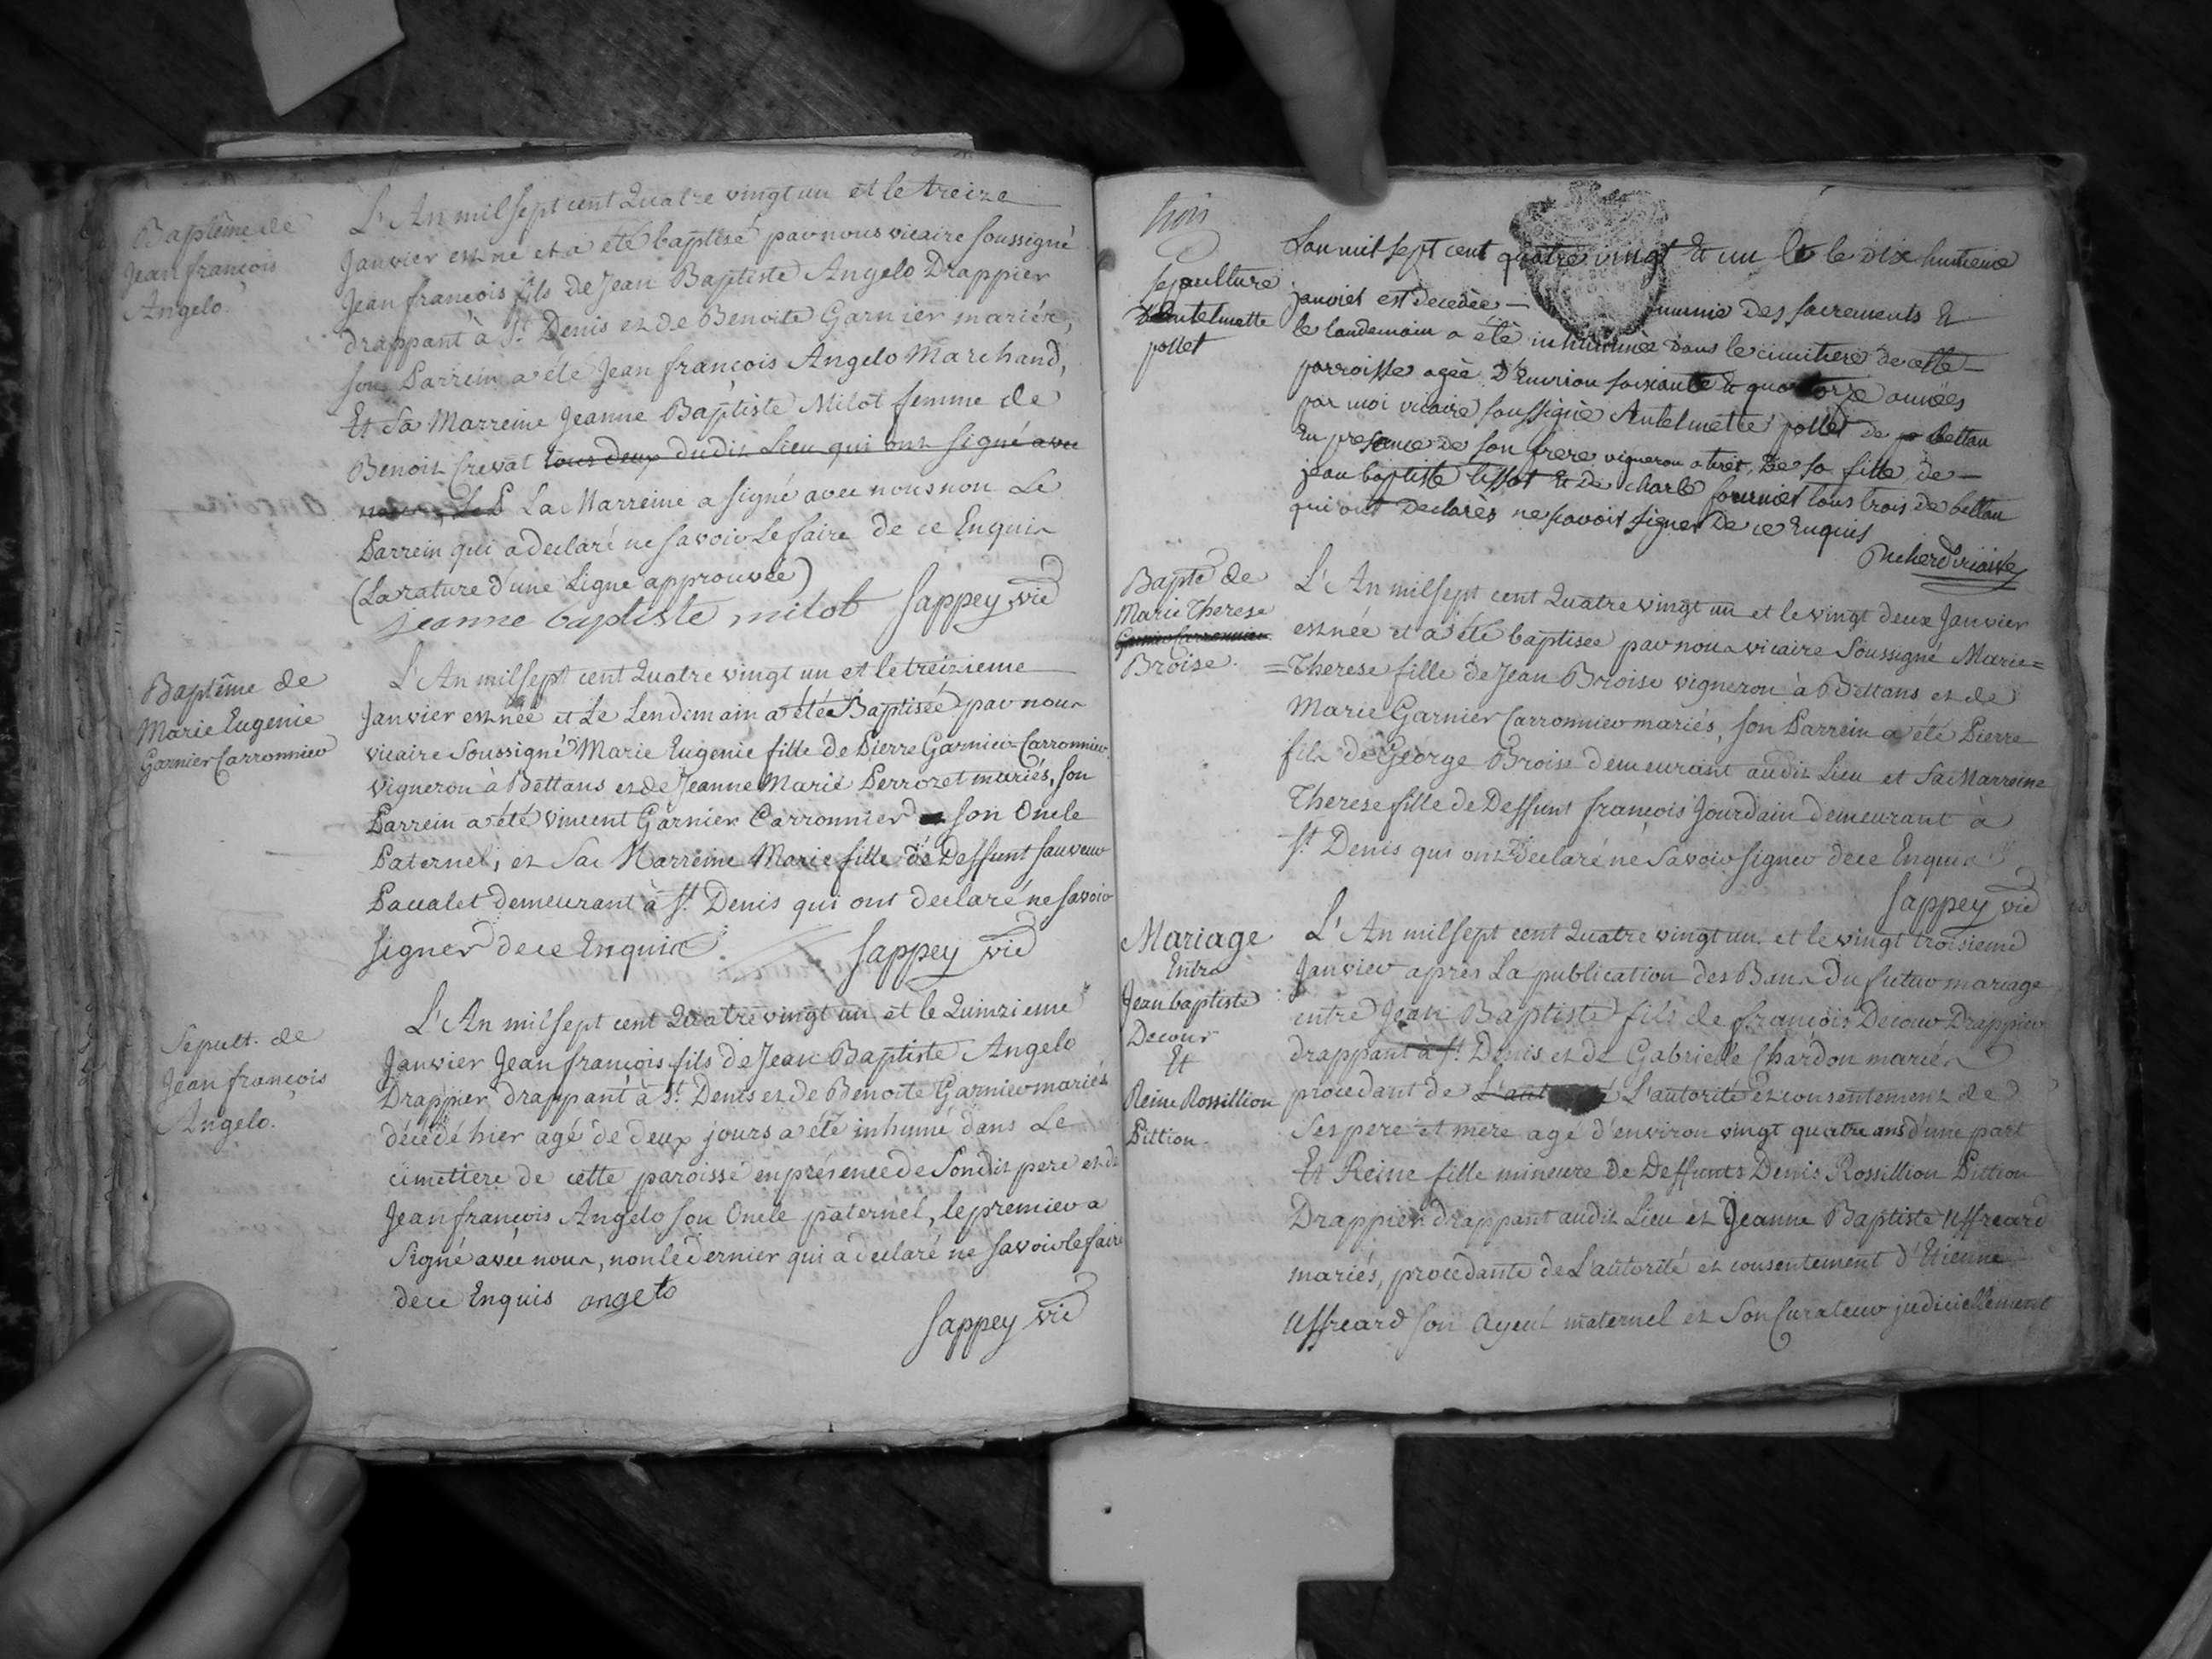 Baptême de
Jean françois
Angelo.
L'An mil sept cent Quatre vingt un et le treize
Janvier est né et a été baptisé par nous vicaire soussigné
Jean françois fils de Jean Baptiste Angelo Drappier
drappant à St. Denis et de Benoite Garnier mariés,
son Parrein a été Jean françois Angelo Marchand,
Et Sa Marreine Jeanne Baptiste Milot femme de
Benoit Crevat tous deux dudit Lieu qui ont signé avec
nous, Le P La Marreine a signé avec nous non Le
Parrein qui a declaré ne savoir Le faire de ce Enquis
(La rature d'une Ligne approuvée)
jeanne baptiste milot Sappey vic
Baptême de
Marie Eugenie
Garnier Carronnier
L'An mil sept cent Quatre vingt un et le treizieme
Janvier est née et Le Lendemain a été Baptisée par nous
vicaire Soussigné Marie Eugenie fille de Pierre Garnier=Carronnier
vigneron à Bettans et de Jeanne Marie Perrozet mariés, son
Parrein a été vincent Garnier Carronnier son Oncle
Paternel, et Sa Marreine Marie fille de Deffunt Sauveur
Pacalet demeurant à St. Denis qui ont declaré ne savoir
signer de ce Enquis.
Sappey vic
Sepult. de
Jean françois
Angelo.
L'An mil sept cent Quatre vingt un et le Quinzieme
Janvier Jean françois fils de Jean Baptiste Angelo
Drappier drappant à St. Denis et de Benoite Garnier mariés
décédé hier agé de deux jours a été inhumé dans Le
cimetiere de cette paroisse en présence de Sondit pere et de
Jean françois Angelo son Oncle paternel, le premier a
Signé avec nous, non le dernier qui a declaré ne savoir le faire
de ce Enquis angelo
Sappey vic
trois
sepulture
d'Antelmette
pollet
Lan mil sept cent quatre vingt Et un Et le dix huitieme
janvier est decedée — munie des sacrements Et
le landemain a été inhumée dans le cimitiere de cette
parroisse agée D'Environ soixante Et quatorze années
par moi vicaire soussigné Antelmette pollet de bettan
En presence de son frere vigneron De sa fille de
jean baptiste tissot Et de charle fournier tous trois de bettan
qui ont Declarés ne savoir signer De ce Enquis
Bapte de
Marie Therese
Garnier Carronnier
Broise.
L'An mil sept cent Quatre vingt un et le vingt deux Janvier
est née et a été baptisée par nous vicaire Soussigné Marie=
=Therese fille de Jean Broise vigneron à Bettans et de
Marie Garnier Carronnier mariés, son Parrein a été Pierre
fils de George Broise demeurant audit Lieu et Sa Marreine
Therese fille de Deffunt françois Jourdain demeurant à
St. Denis qui ont declaré ne savoir signer de ce Enquis
Sappey vic
Mariage
Entre
Jean baptiste
Decour
Et
Reine Rossillion
Pittion.
L'An mil sept cent Quatre vingt un. et le vingt troisieme
Janvier après La publication des Bans du futur mariage
entre Jean Baptiste fils de françois Decour Drappier
drappant à St. Denis et de Gabrielle Chardon mariés
procedant de L'autorité et consentement de
Ses pere et mere agé d'environ vingt quatre ans d'une part
Et Reine fille mineure de Deffunts Denis Rossillion Pittion
Drappier drappant audit Lieu et Jeanne Baptiste Uffreard
mariés, procedante de L'autorité et consentement d'Etienne
Uffreard son Ayeul maternel et Son Curateur judiciellement